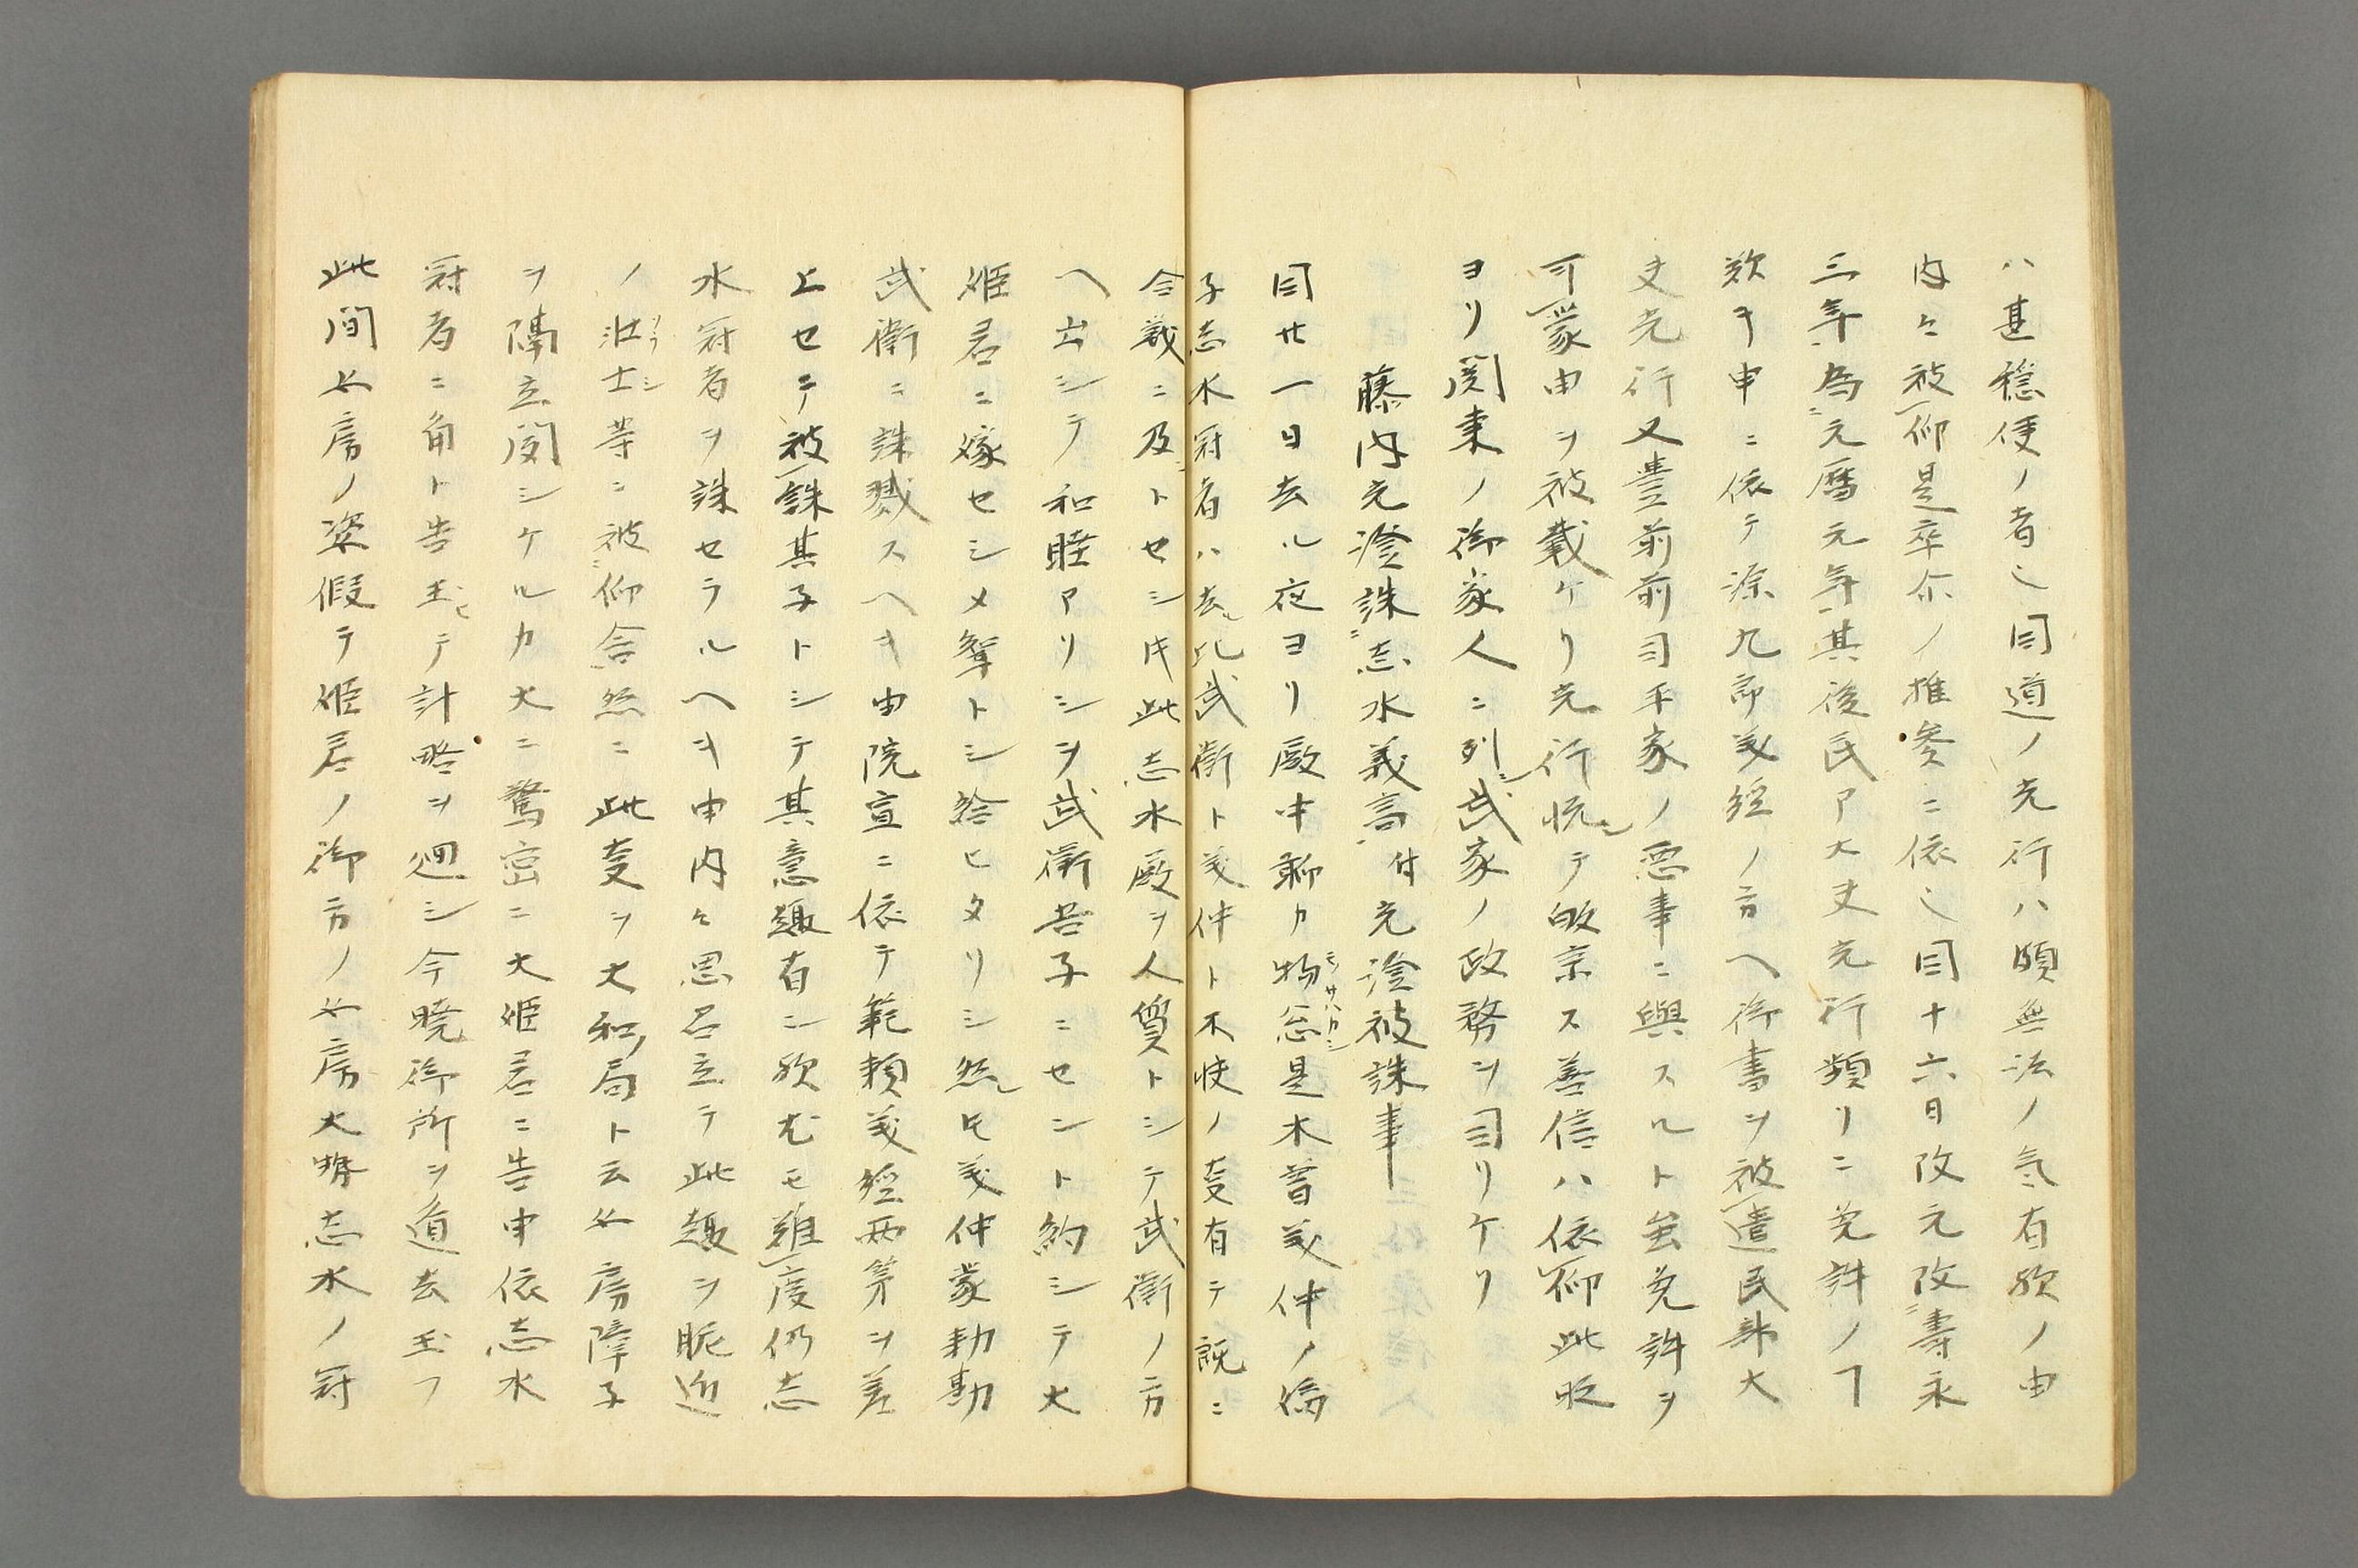 ハ甚穏便ノ者也同道ノ光行ハ頗無法ノ気有歟ノ由
内々被仰是卒尓ノ推参ニ依也同十六日改元改壽永
三年為元暦元年其後民ア大丈光行頻リニ免許ノヿ
歎キ申ニ依テ源九郎義経ノ方ヘ御書ヲ被遣民部大
丈光行又豊前前司平家ノ悪事ニ與スルト虽免許ヲ
可蒙由ヲ被載ケリ光行悦テ皈京ス善信ハ依仰此晈
ヨリ関東ノ御家人ニ列シ武家ノ政務ヲ司リケリ
藤内光澄誅志水義高付光澄被誅事
同廿一日去ル夜ヨリ殿中聊カ物忩是木曽義仲ノ嫡
子志水冠者ハ去ル比武衛ト義仲ト不快ノ叓有テ既ニ
合戦ニ及ントセシ時此志水殿ヲ人質トシテ武衛ノ方
ヘ出シテ和睦アリシヲ武衛吾子ニセント約シテ大
姫君ニ嫁セシメ聟トシ給ヒタリシ然レ𪜈義仲蒙勅勘
武衛ニ誅戮スヘキ由院宣ニ依テ範頼義経両舅ヲ差
上セテ被誅其子トシテ其意趣有ン歟尤モ難度仍志
水冠者ヲ誅セラルヘキ由内々思召立テ此趣ヲ昵近
ノ壮士等ニ被仰含然ニ此叓ヲ大和局ト云女房障子
ヲ隔立聞シケルカ大ニ驚密ニ大姫君ニ告申依志水
冠者ニ角ト告玉ヒテ計略ヲ廻シ今暁御所ヲ道去玉フ
此間女房ノ姿假テ姫君ノ御方ノ女房大勢志水ノ冠